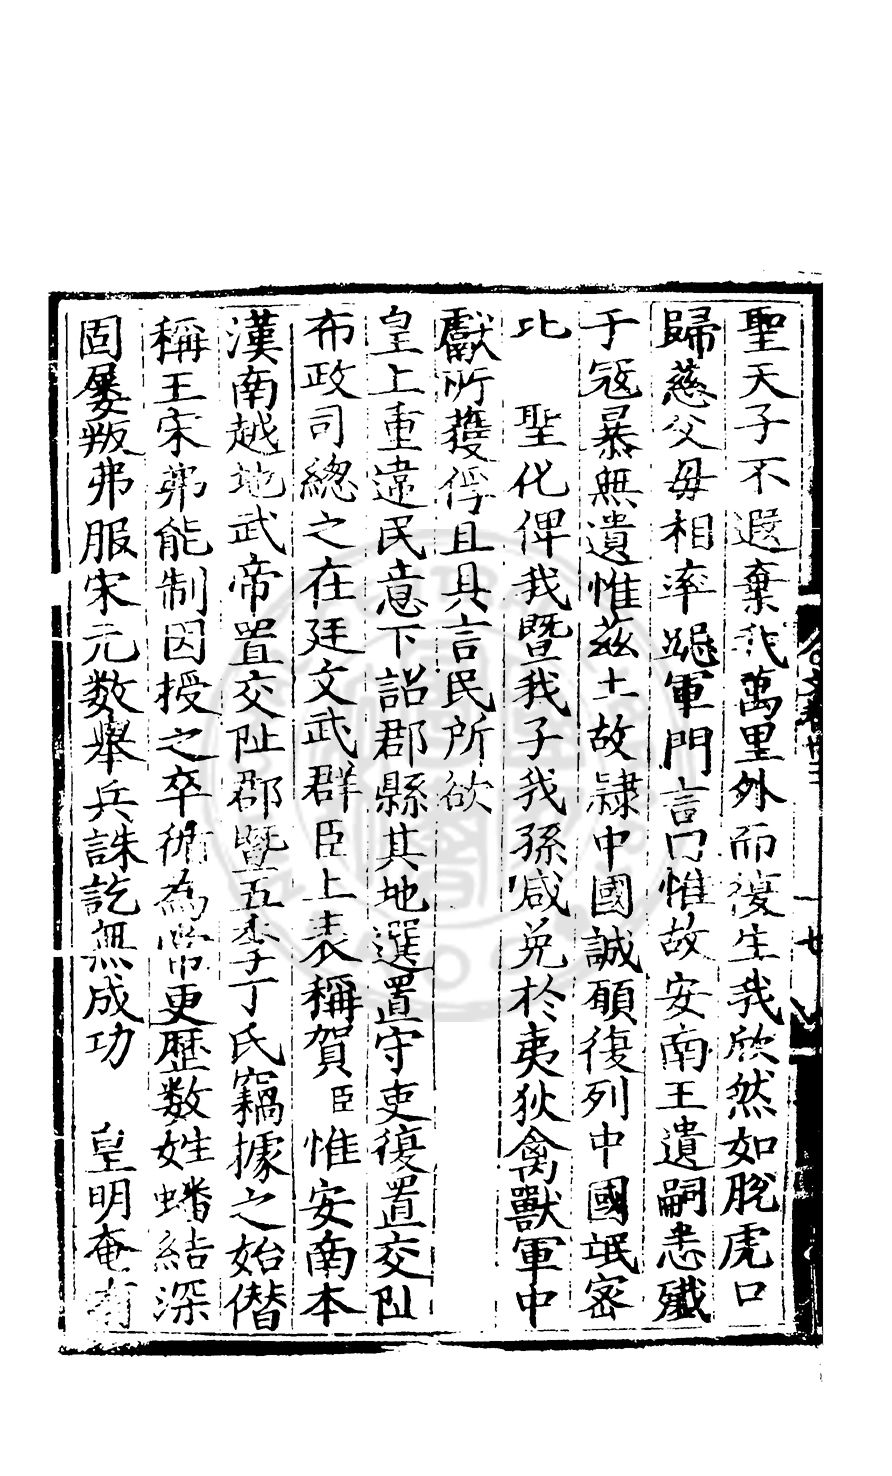 聖天子不遐棄我萬里外而復生我欣然如脫虎口
歸慈父母相率跽軍門言曰惟故安南王遺嗣悉殲
于寇暴無遺惟茲土故隸中國誠願復列中國氓密
比　聖化俾我暨我子我孫咸免於夷狄禽獸軍中
獻所獲俘且具言民所欲
皇上重違民意下詔郡縣其地選置守吏復置交阯
布政司總之在廷文武群臣上表稱賀臣惟安南本
漢南越地武帝置交阯郡暨五季丁氏竊據之始僣
稱王宋弗能制因授之卒循為常更歷數姓蟠結深
固屢叛弗服宋元数舉兵誅訖無成功　皇明奄有